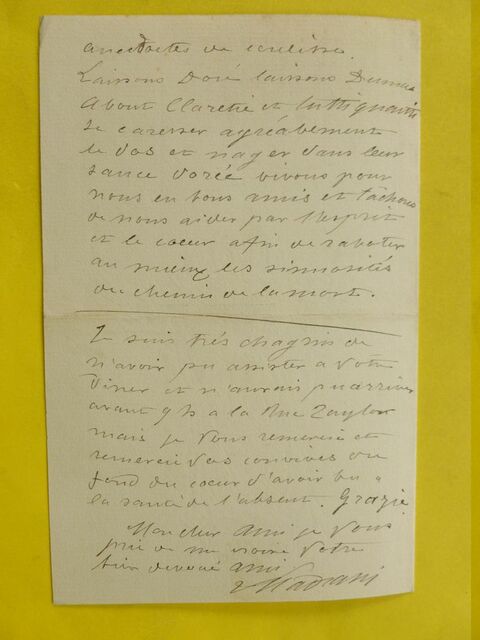 anecdotes de coulisse.
Laissons Doré laissons Dumas
About Claretie et tutti quanti
se caresser agréabement
le dos et nager dans leur
sauce dorée vivons pour
nous en bons amis et tâchons
de nous aider par l'esprit
et le coeur afin de raboter
au mieux les sinuosités
du chemin de la mort.
Je suis très chagrin de
n'avoir pu assister à votre
diner et n'aurais pu arriver
avant 9 h a la Rue Taylor
mais je vous remercie et
remercie vos convives du
fond du coeur d'avoir bu a
la santé de l'absent. Grazie.
Mon cher ami je vous
prie de me croire votre
bien devoué ami